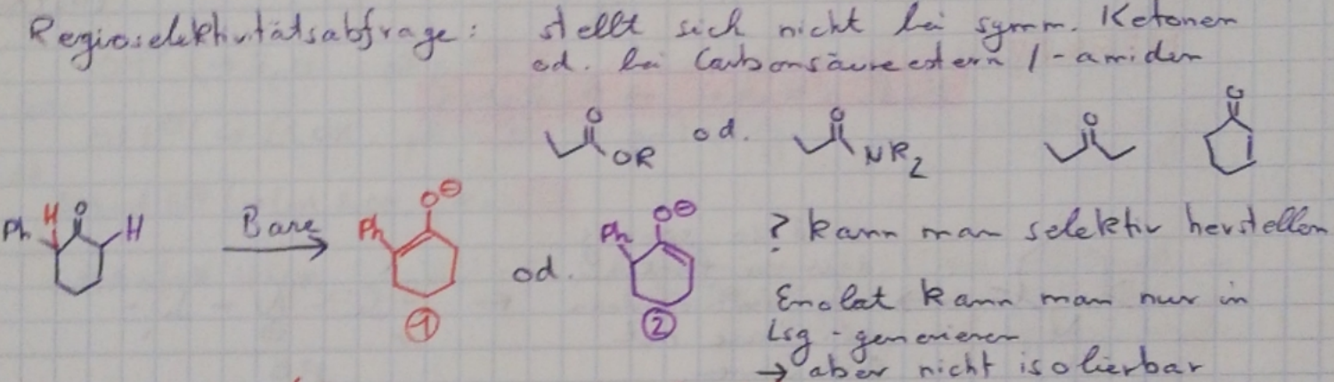 Regioselektivitätsabfrage: stellt sich nicht bei symm. Ketonen
od. bei Carbonsäureestern /-amiden
O OR od. O NR2 O O
Ph H O H Base Ph O⊖ od. Ph O⊖ ? kann man selektiv herstellen
1 2
Enolat kann man nur in
Lsg. generieren
→ aber nicht isolierbar